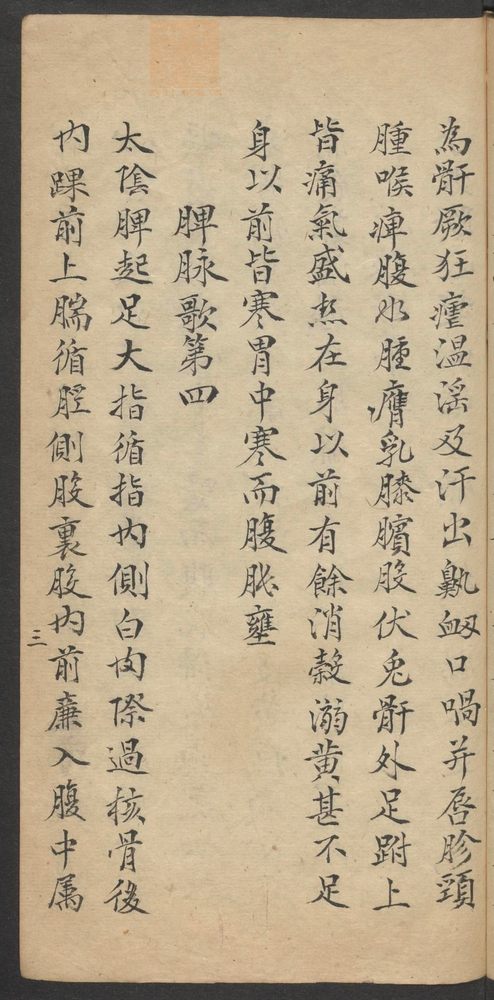 為骭厥狂瘧温滛及汗出鼽衂口喎并唇胗頸
腫喉痺腹水腫膺乳膝臏股伏兎骭外足跗上
皆痛氣盛熱在身以前有餘消穀溺黄甚不足
身以前皆寒胃中寒而腹脹壅
脾脉歌第四
太陰脾起足大指循指内側白肉際過核骨後
内踝前上腨循脛側股裏股内前廉入腹中属
三